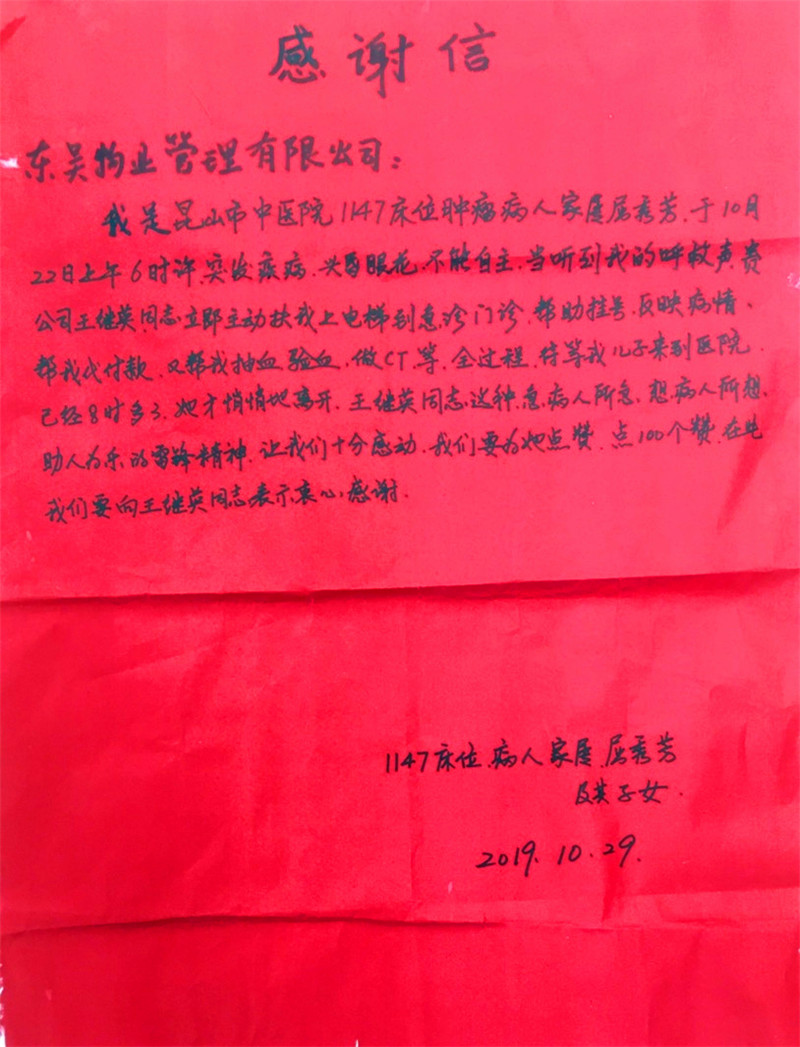 感谢信
东吴物业管理有限公司：
我是昆山市中医院1147床位肿瘤病人家属屈秀芳、于10月
22日上午6时许、突发疾病、头昏眼花、不能自主、当听到我的呼救声、贵
公司王继英同志立即主动扶我上电梯到急诊门诊、帮助挂号、反映病情、
帮我代付款、又帮我抽血、验血、做CT等、全过程、待等我儿子来到医院、
已经8时多了、她才悄悄地离开、王继英同志这种、急病人所急、想病人所想、
助人为乐的雷锋精神、让我们十分感动、我们要为她点赞、点100个赞、在此
我们要向王继英同志表示衷心感谢.
1147床位、病人家属、屈秀芳
及其子女.
2019.10.29.